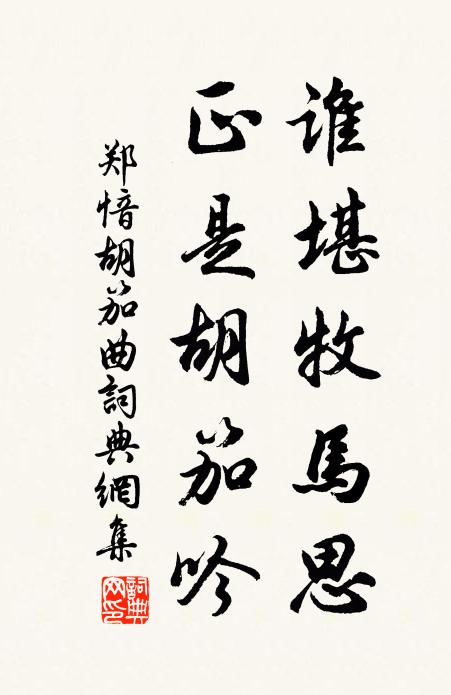 谁堪牧馬思
正是胡笳吟
郑愔胡笳曲詞典網集
詞典网印